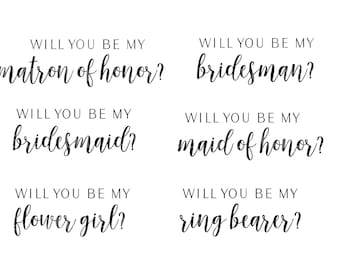 WILL YOU BE MY
matron of honor?
WILL YOU BE MY
bridesman?
WILL YOU BE MY
bridesmaid?
WILL YOU BE MY
maid of honor?
WILL YOU BE MY
flower girl?
WILL YOU BE MY
ring bearer?